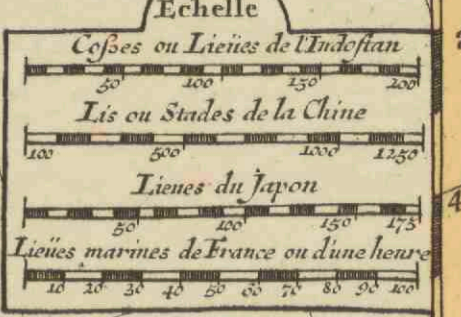 Echelle
Coſses ou Lieües de l'Indoſtan
50 100 150 200
Lis ou Stades de la Chine
100 500 1000 1250
Lieues du Japon
50 100 150 175
Lieües marines de France ou d'une heure
10 20 30 40 50 60 70 80 90 100
4